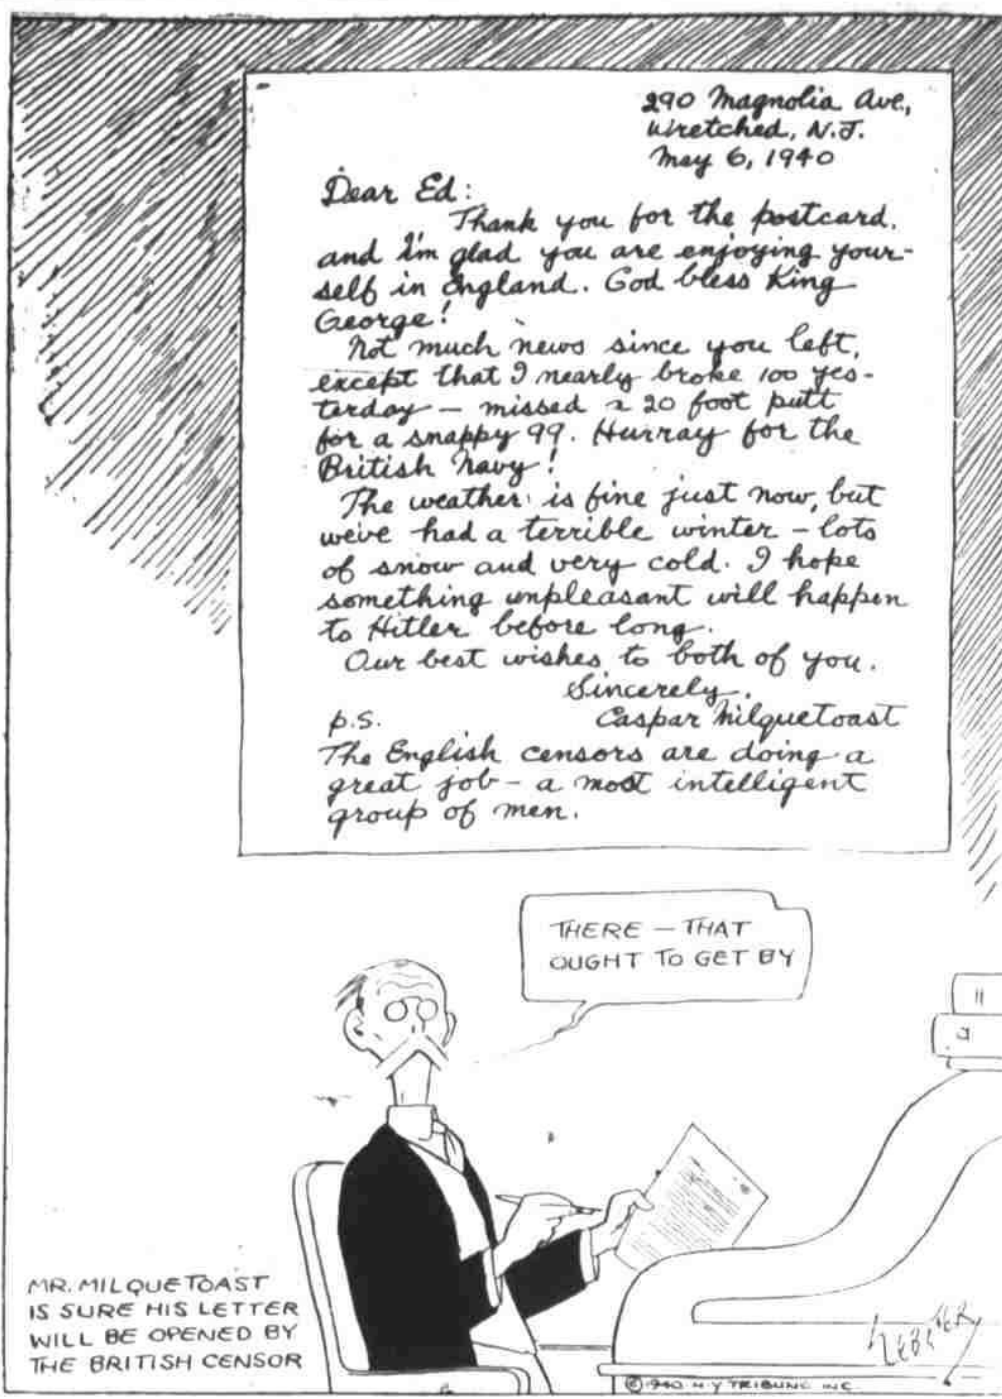 290 Magnolia Ave.,
Wretched, N.J.
May 6, 1940
Dear Ed:
Thank you for the postcard.
and I'm glad you are enjoying your-
self in England. God bless King
George!
Not much news since you left,
except that I nearly broke 100 yes-
terday — missed a 20 foot putt
for a snappy 99. Hurray for the
British Navy!
The weather is fine just now, but
we've had a terrible winter — lots
of snow and very cold. I hope
something unpleasant will happen
to Hitler before long.
Our best wishes to both of you.
Sincerely,
Caspar Milquetoast
P.S.
The English censors are doing a
great job — a most intelligent
group of men.
THERE — THAT
OUGHT TO GET BY
MR. MILQUETOAST
IS SURE HIS LETTER
WILL BE OPENED BY
THE BRITISH CENSOR
WEBSTER
© 1940 N.Y. TRIBUNE INC.